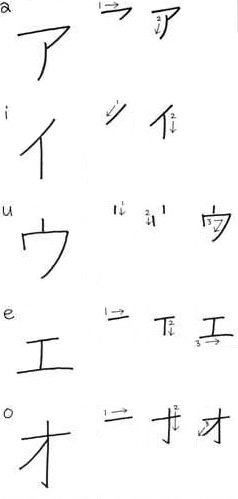 a ア 1 2
i イ 1 2
u ウ 1 2 3
e エ 1 2 3
o オ 1 2 3